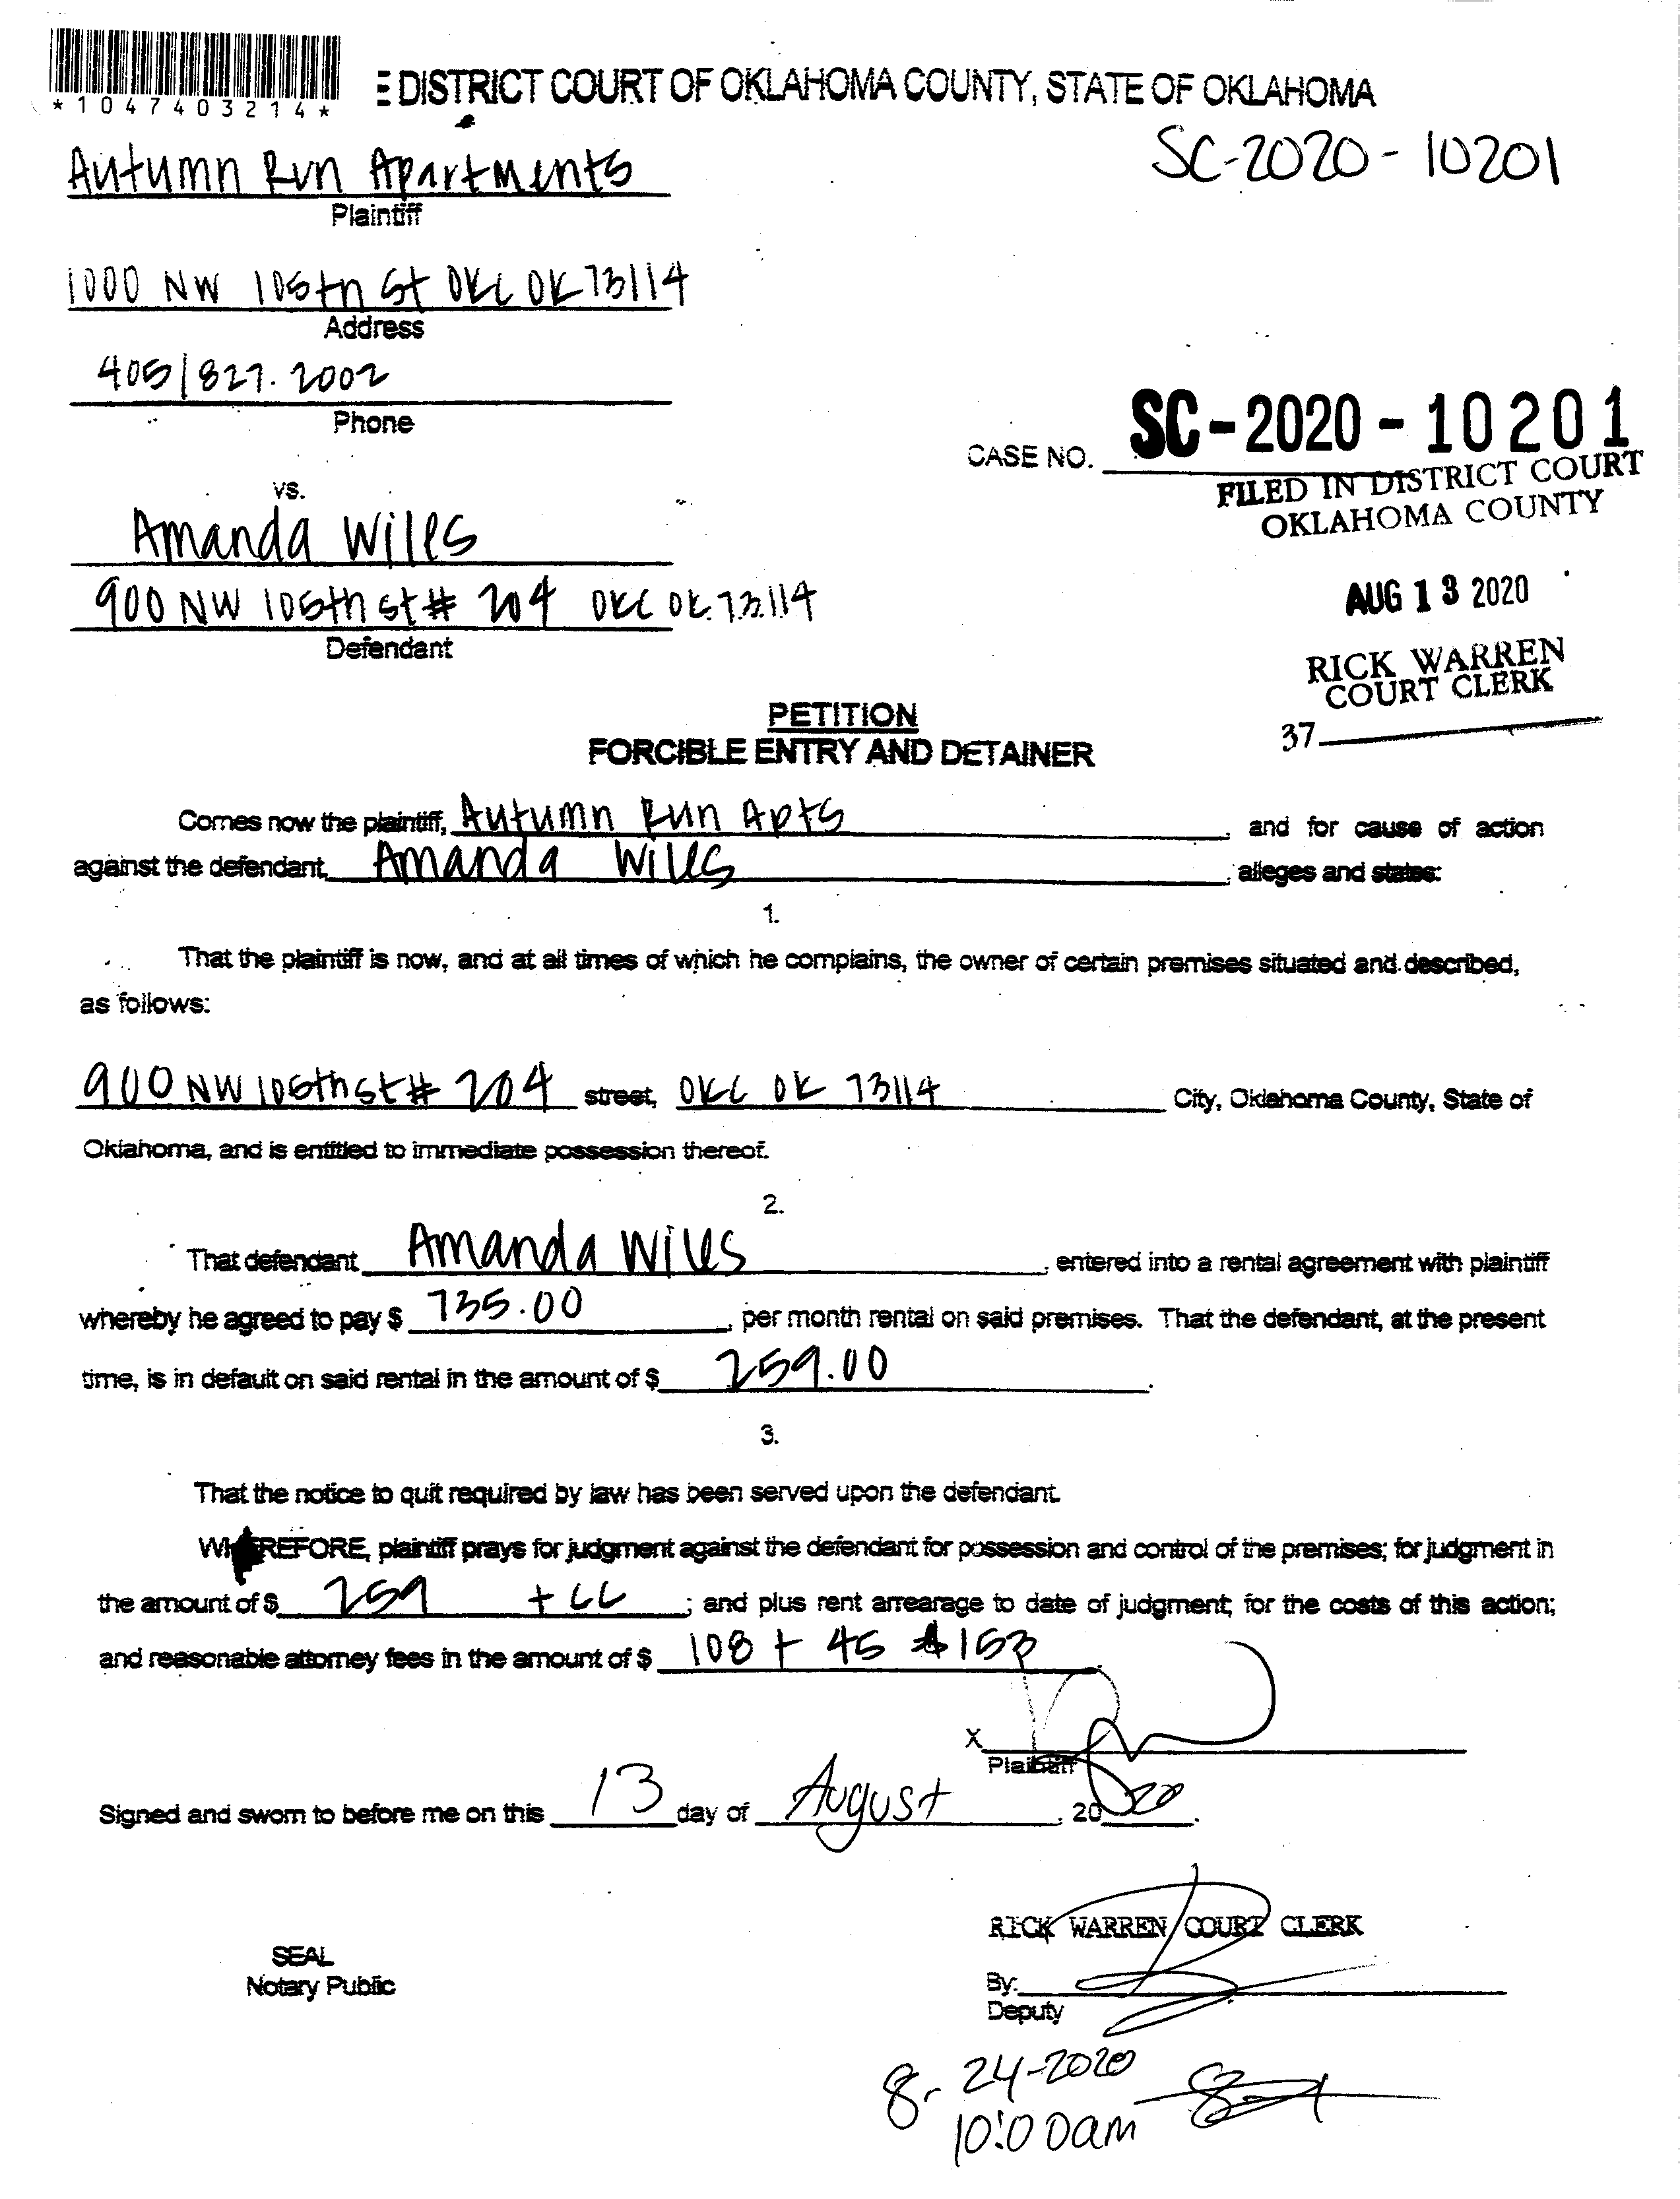 *1047403214*
E DISTRICT COURT OF OKLAHOMA COUNTY, STATE OF OKLAHOMA
SC-2020-10201
Autumn Run Apartments
Plaintiff
1000 NW 105th St OKC OK 73114
Address
405/827.2002
Phone
CASE NO. SC-2020-10201
FILED IN DISTRICT COURT
OKLAHOMA COUNTY
vs.
Amanda Wiles
900 NW 105th st # 204 OKC OK 73114
Defendant
AUG 13 2020
RICK WARREN
COURT CLERK
37
PETITION
FORCIBLE ENTRY AND DETAINER
Comes now the plaintiff, Autumn Run Apts, and for cause of action
against the defendant, Amanda Wiles, alleges and states:
1.
That the plaintiff is now, and at all times of which he complains, the owner of certain premises situated and described,
as follows:
900 NW 105th st # 204 street, OKC OK 73114 City, Oklahoma County, State of
Oklahoma, and is entitled to immediate possession thereof.
2.
That defendant Amanda Wiles, entered into a rental agreement with plaintiff
whereby he agreed to pay $ 735.00, per month rental on said premises. That the defendant, at the present
time, is in default on said rental in the amount of $ 259.00.
3.
That the notice to quit required by law has been served upon the defendant.
WHEREFORE, plaintiff prays for judgment against the defendant for possession and control of the premises; for judgment in
the amount of $ 259 + CC; and plus rent arrearage to date of judgment; for the costs of this action;
and reasonable attorney fees in the amount of $ 108 + 45 $153
X
Plaintiff
Signed and sworn to before me on this 13 day of August, 2020.
RICK WARREN COURT CLERK
SEAL
Notary Public
By:
Deputy
8-24-2020
10:00am